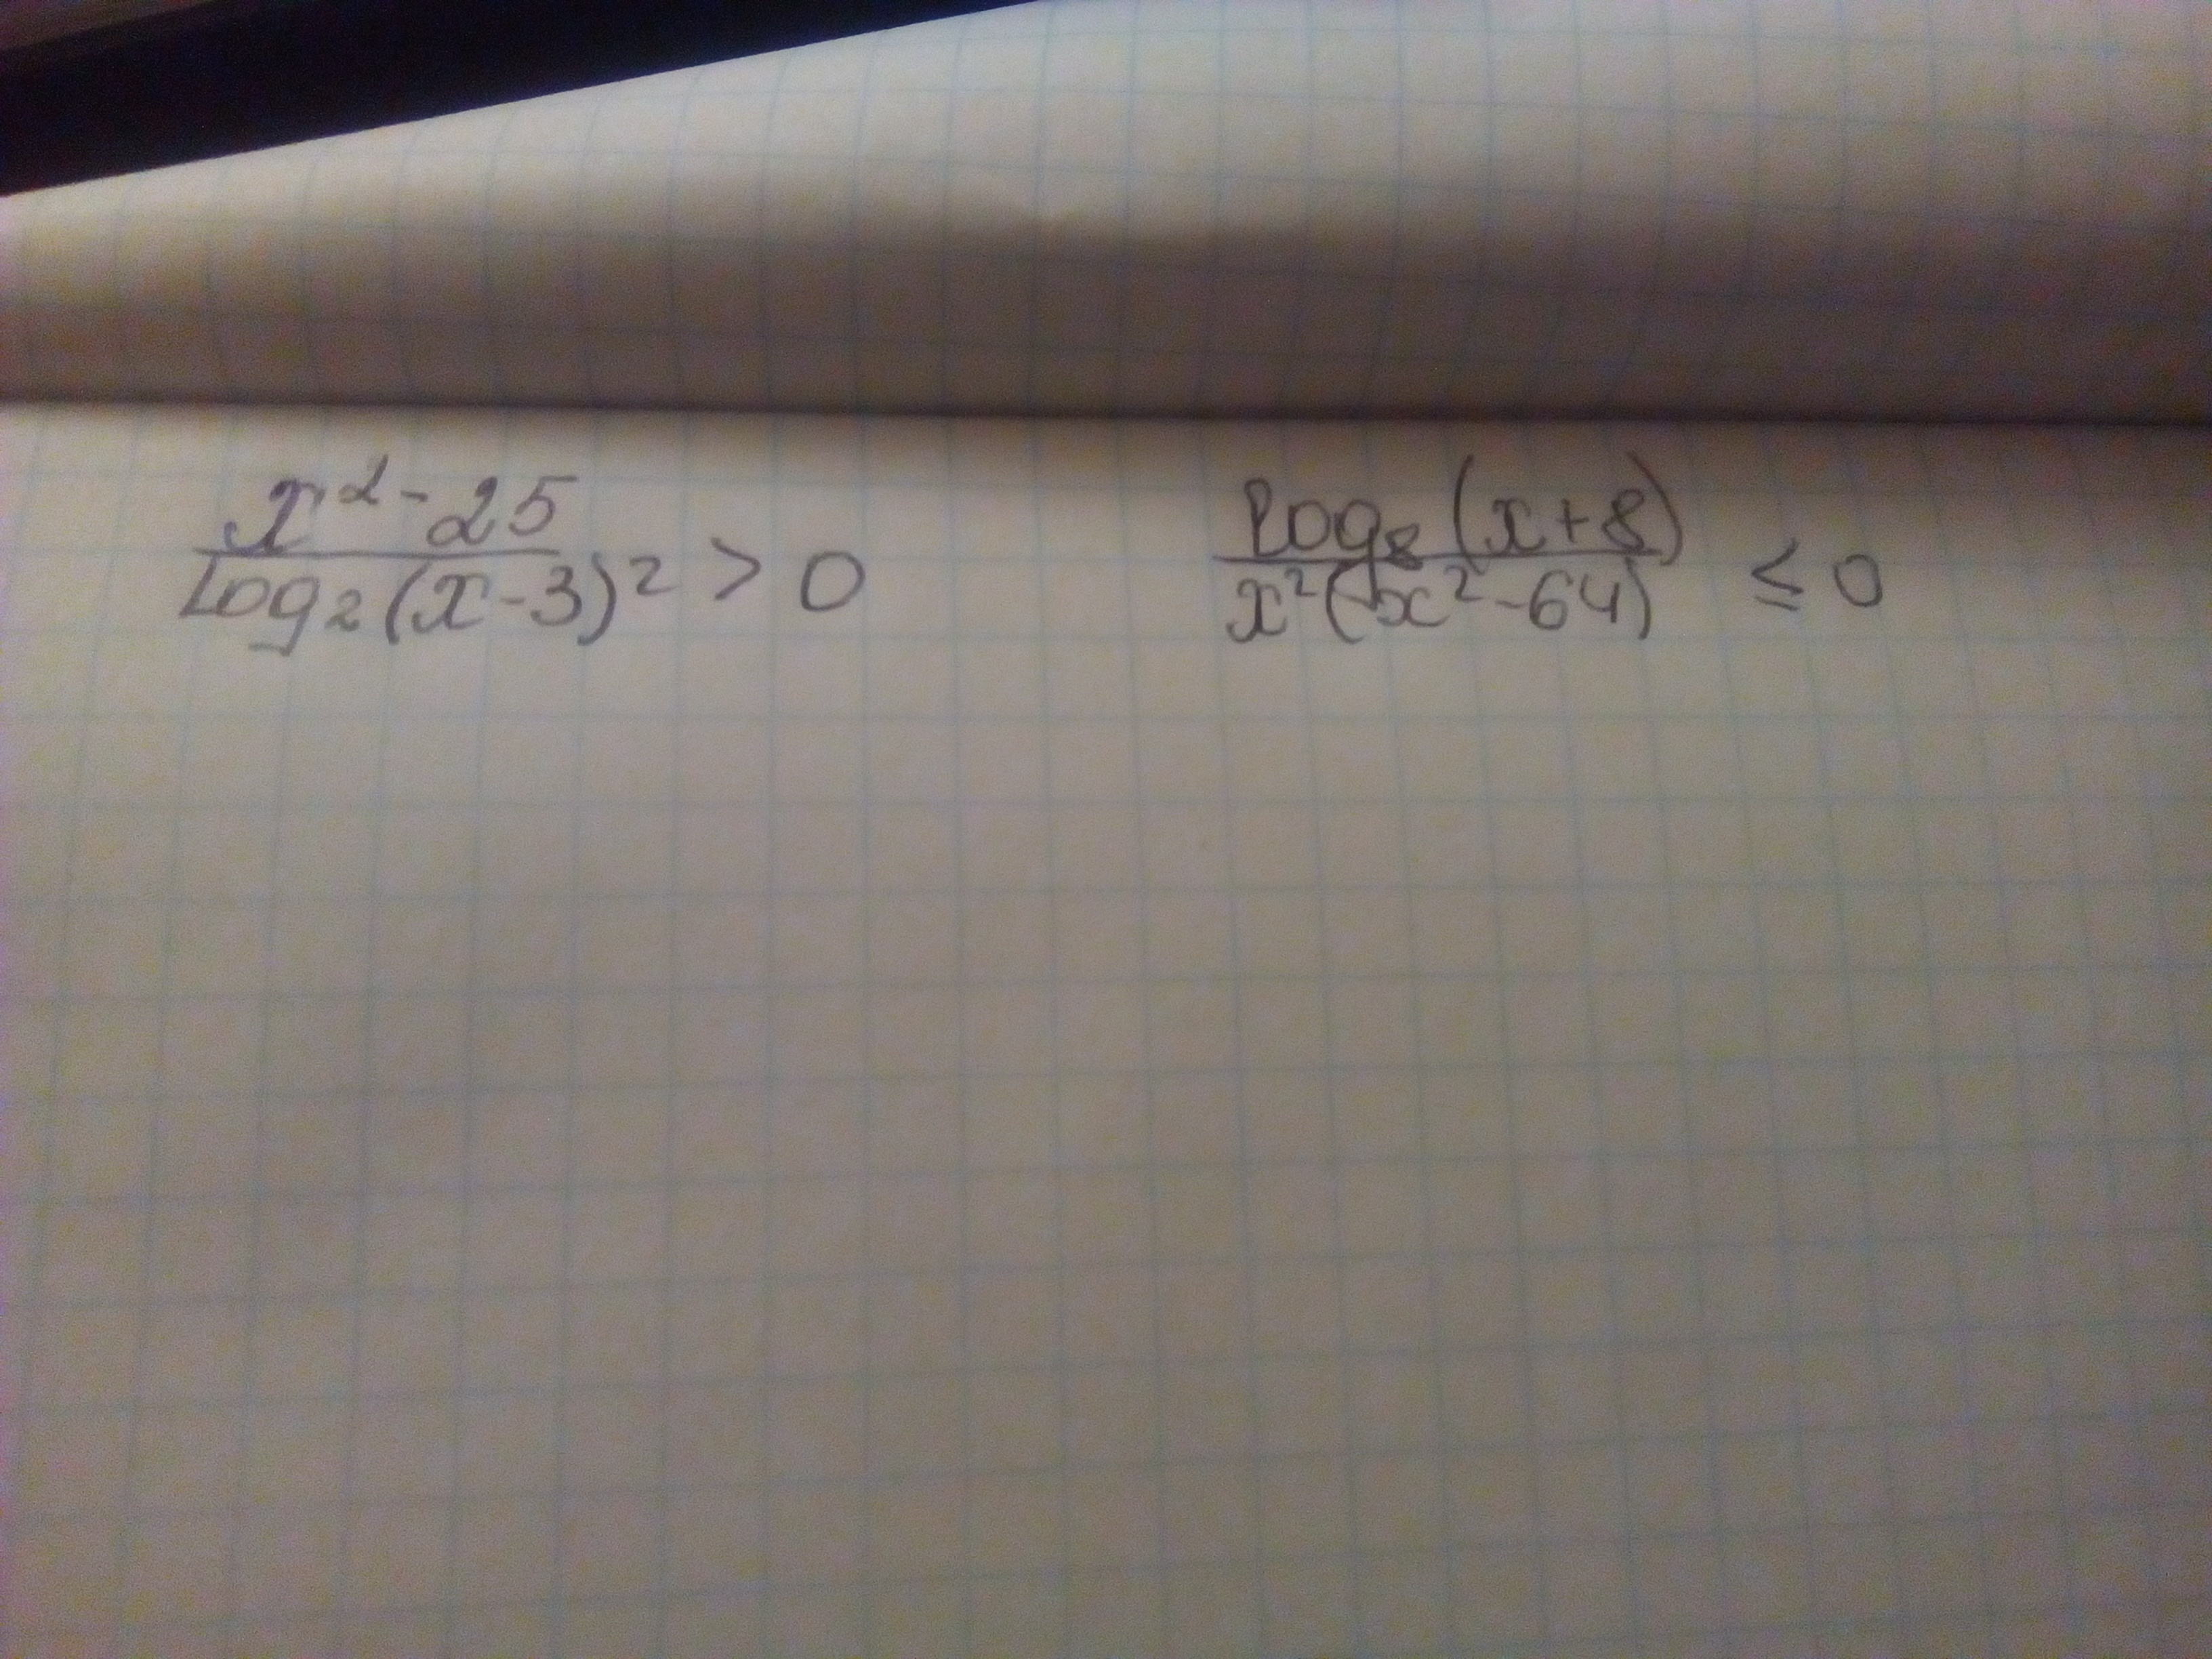 x²-25
log₂(x-3)² > 0
log₈(x+8)
x²(x²-64) ≤ 0